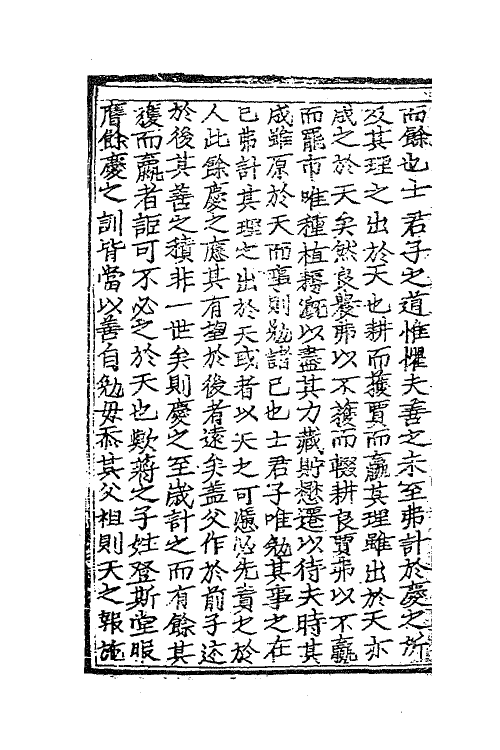 而餘也士君子之道惟懼夫善之未至弗計於慶之所
及其理之出於天也耕而穫賈而贏其理雖出於天亦
成之於天矣然良農弗以不穫而輟耕良賈弗以不贏
而罷市唯種植耨溉以盡其力藏貯懋遷以待夫時其
成雖原於天而事則勉諸己也士君子唯勉其事之在
己弗計其理之出於天或者以天之可慿必先責之於
人此餘慶之應其有望於後者遠矣盖父作於前子述
於後其善之積非一世矣則慶之至歲計之而有餘其
穫而贏者詎可不必之於天也歟蔣之子姓登斯堂服
膺餘慶之訓皆當以善自勉毋忝其父祖則天之報施